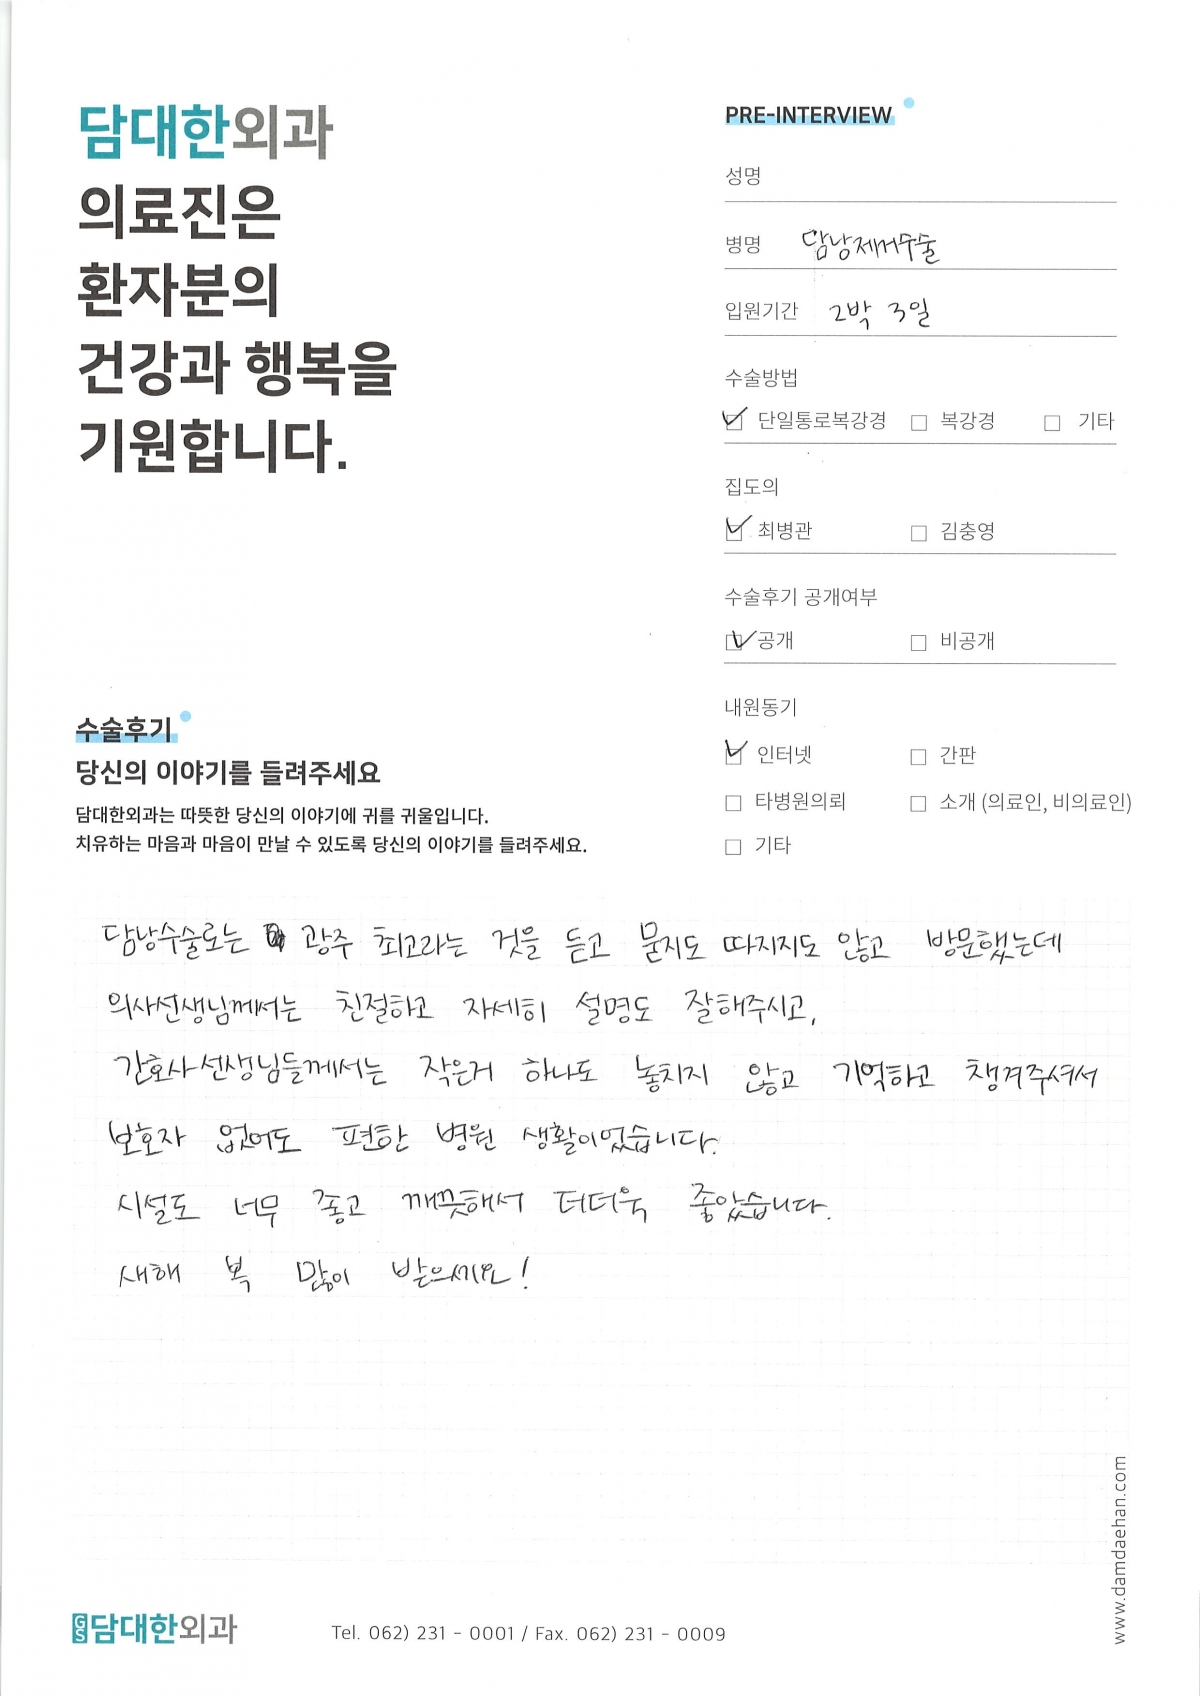 담대한외과
의료진은
환자분의
건강과 행복을
기원합니다.
PRE-INTERVIEW
성명
병명 담낭제거수술
입원기간 2박 3일
수술방법
단일통로복강경 복강경 기타
집도의
최병관 김충영
수술후기 공개여부
공개 비공개
내원동기
인터넷 간판
타병원의뢰 소개 (의료인, 비의료인)
기타
수술후기
당신의 이야기를 들려주세요
담대한외과는 따뜻한 당신의 이야기에 귀를 귀울입니다.
치유하는 마음과 마음이 만날 수 있도록 당신의 이야기를 들려주세요.
담낭수술로는 광주 최고라는 것을 듣고 묻지도 따지지도 않고 방문했는데
의사선생님께서는 친절하고 자세히 설명도 잘해주시고,
간호사선생님들께서는 작은거 하나도 놓치지 않고 기억하고 챙겨주셔서
보호자 없어도 편한 병원 생활이었습니다.
시설도 너무 좋고 깨끗해서 더더욱 좋았습니다.
새해 복 많이 받으세요!
www.damdaehan.com
GS 담대한외과
Tel. 062) 231 - 0001 / Fax. 062) 231 - 0009